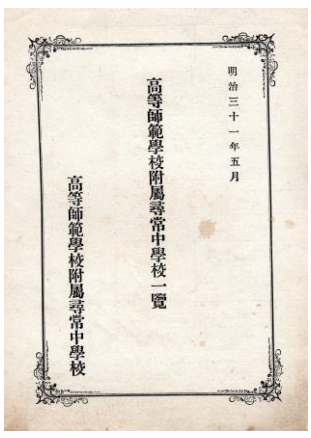 明治三十一年五月
高等師範學校附屬尋常中學校一覽
高等師範學校附屬尋常中學校